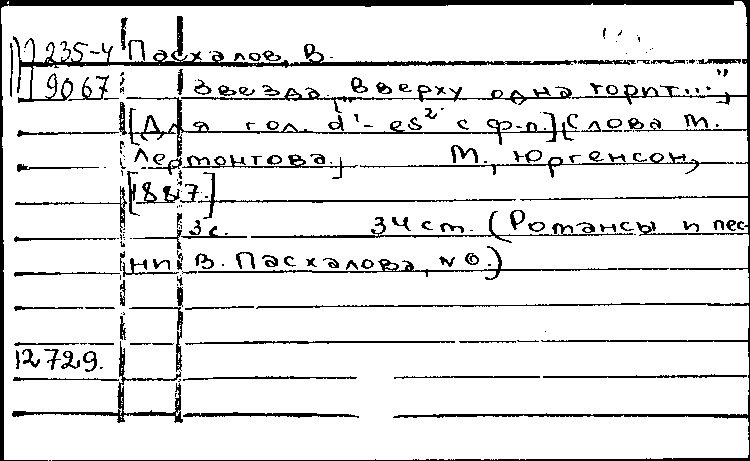 П 235-4 Пасхалов, В.
9067 Звезда. „Вверху одна горит...",
[Для гол. d¹- es² с ф-п.] [Слова М.
Лермонтова.] М., Юргенсон,
[1887.]
3 с. 34 ст. (Романсы и пес-
ни В. Пасхалова, № 6.)
12729.